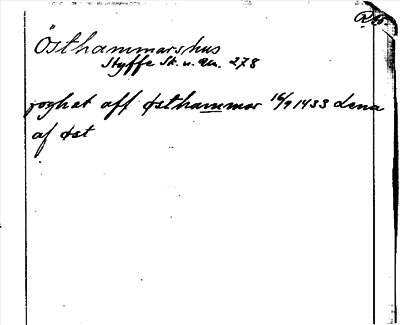 Östhammarshus
Styffe Sk. u. un. 278
foghat aff østhammar 16/9 1433 Lena
af øst